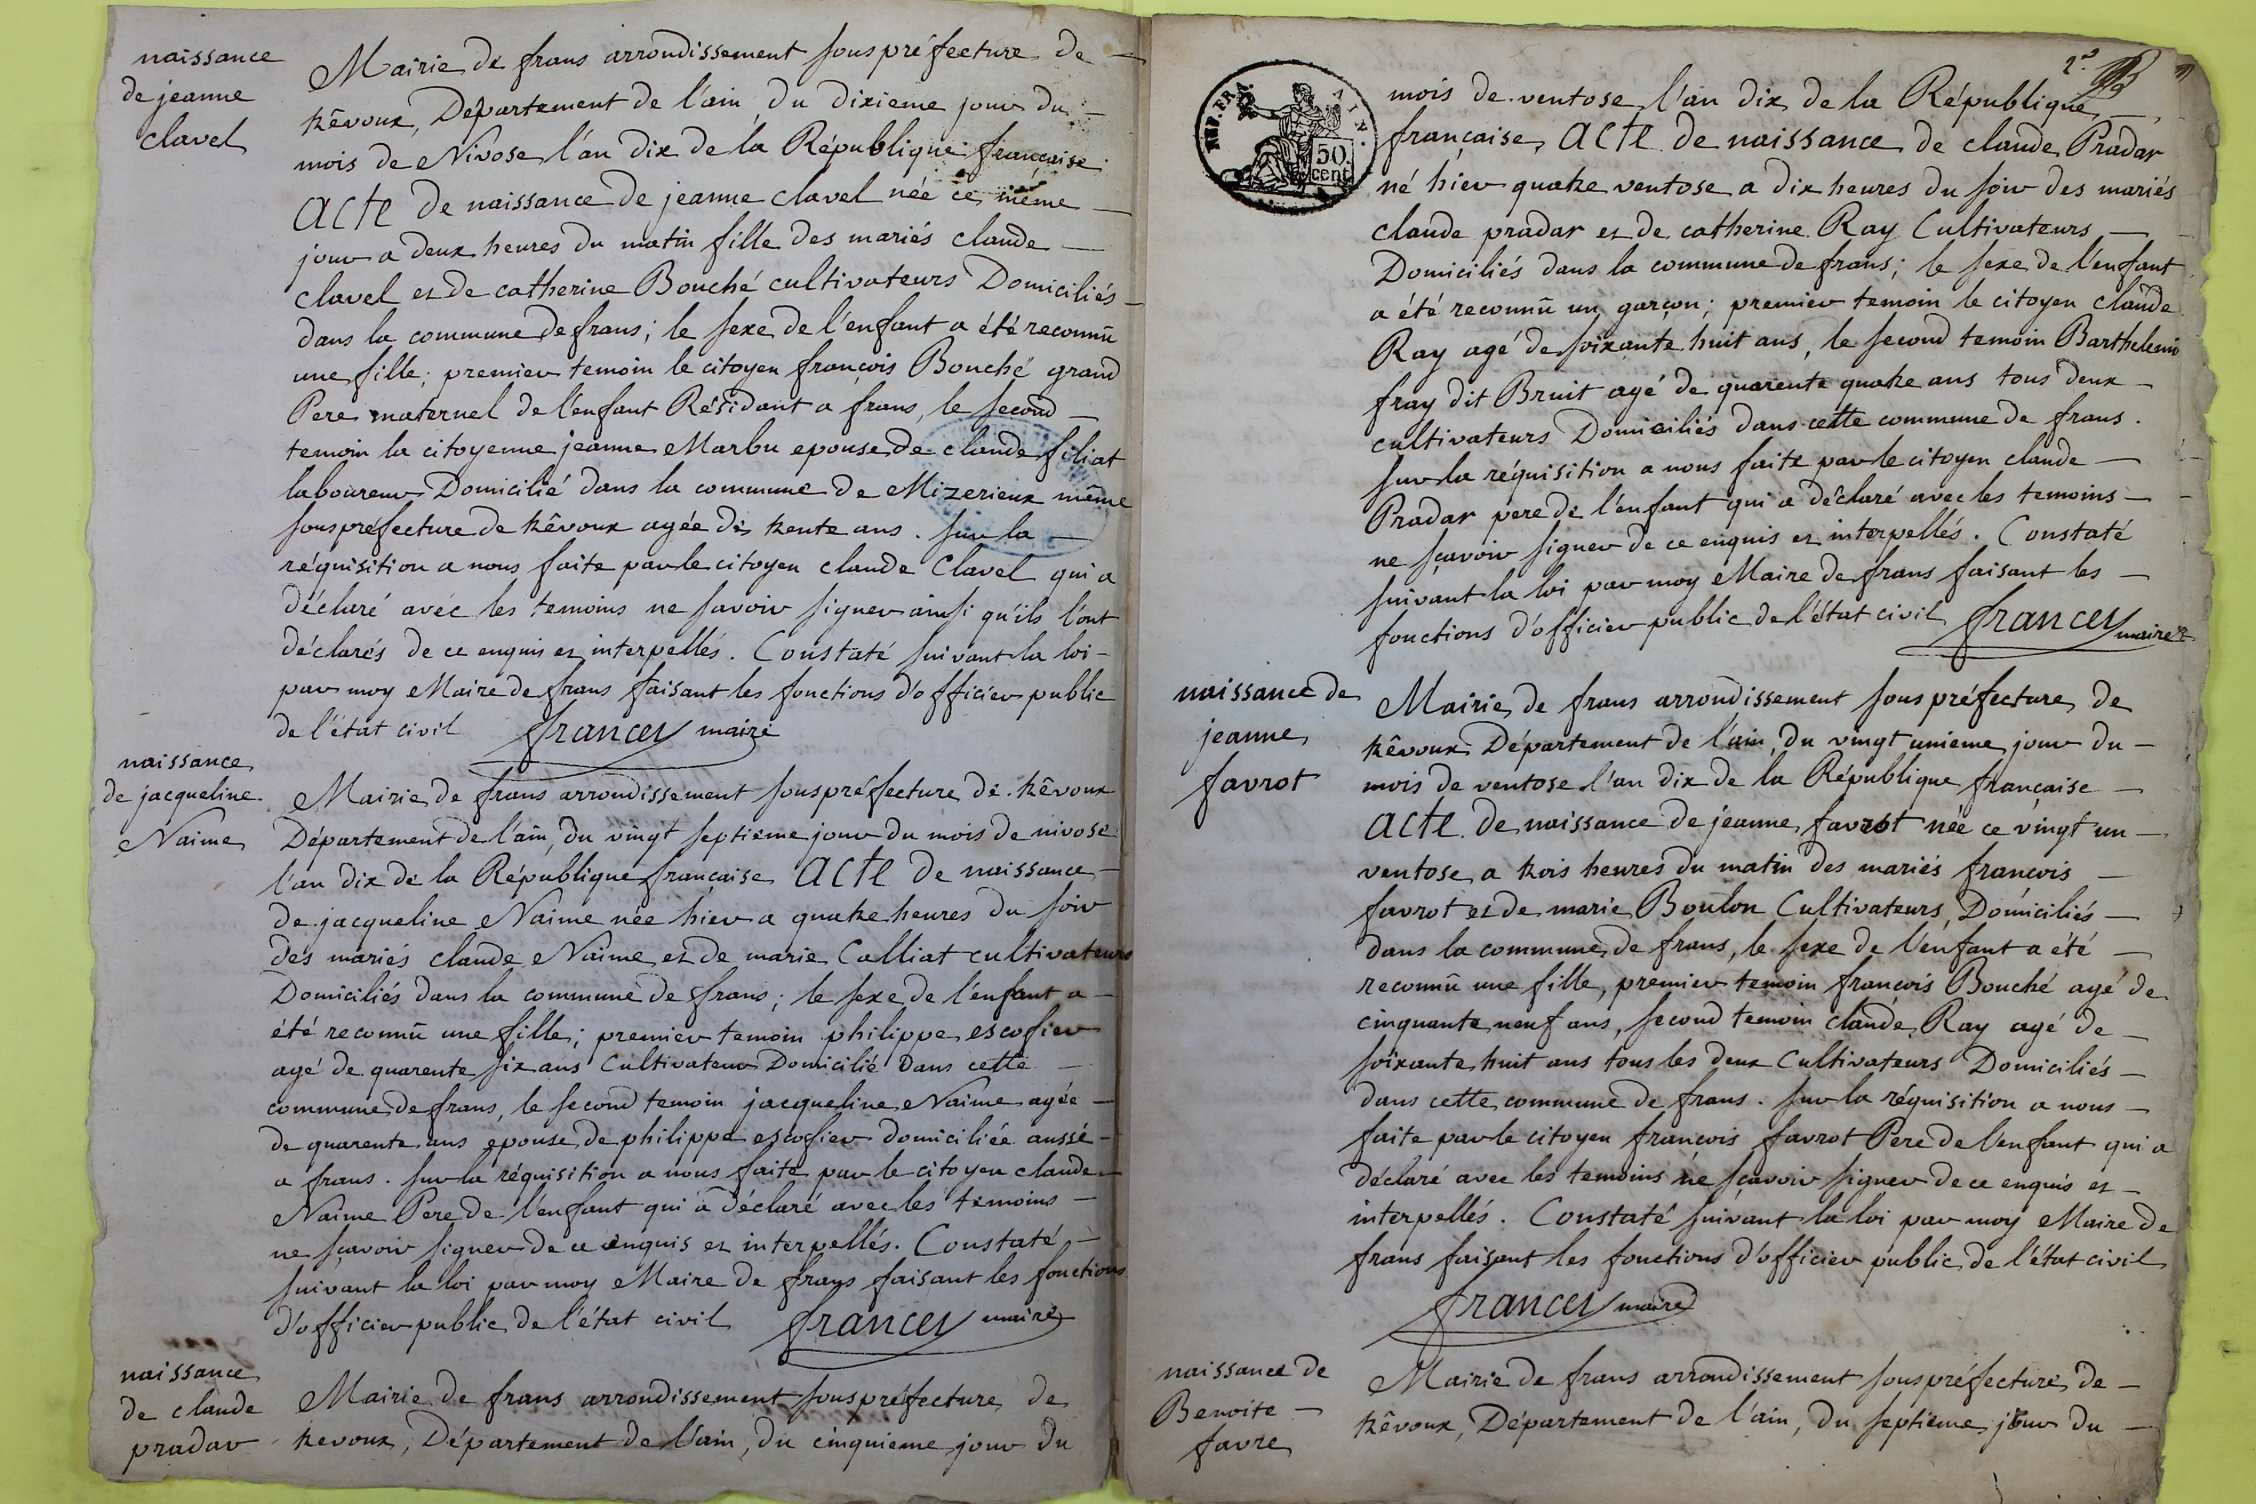 naissance
de jeanne
clavel
Mairie de frans arrondissement souspréfecture de
trêvoux, Département de l'ain du dixieme jour du
mois de Nivose l'an dix de la République française
acte de naissance de jeanne clavel née ce même
jour a deux heures du matin fille des mariés claude
clavel et de catherine Bouché cultivateurs Domiciliés
dans la commune de frans; le sexe de l'enfant a été reconnü
une fille; premier temoin le citoyen françois Bouché grand
Pere maternel de l'enfant Résidant a frans, le second
temoin la citoyenne jeanne Marbu epouse de claude filiat
laboureur Domicilié dans la commune de Mizerieux même
souspréfecture de trêvoux agée de trente ans. sur la
réquisition a nous faite par le citoyen claude Clavel qui a
déclaré avéc les temoins ne savoir signer ainsi qu'ils l'ont
déclarés de ce enquis et interpellés. Constaté suivant la loi
par moy Maire de frans faisant les fonctions d'officier public
de l'état civil francey maire
naissance
de jacqueline
Naime
Mairie de frans arrondissement souspréfecture de trêvoux
Département de l'ain, du vingt septieme jour du mois de nivose
l'an dix de la République française acte de naissance
de jacqueline Naime née hier a quatre heures du soir
des mariés claude Naime et de marie Calliat cultivateurs
Domiciliés dans la commune de frans; le sexe de l'enfant a
été reconnü une fille; premier temoin philippe escofier
agé de quarente six ans Cultivateur Domicilié dans cette
commune de frans, le second temoin jacqueline Naime agée
de quarente ans epouse de philippe escofier domiciliée aussé
a frans. sur la réquisition a nous faite par le citoyen claude
Naime Pere de l'enfant qui a déclaré avec les temoins
ne sçavoir signer de ce enquis et interpellés. Constaté
suivant la loi par moy Maire de frans faisant les fonctions
d'officier public de l'état civil francey maire
naissance
de claude
pradar
Mairie de frans arrondissement souspréfecture de
trevoux, Département de l'ain, du cinquieme jour du
REP. FRA. AIN.
50.
cent.
mois de ventose l'an dix de la République
française, acte de naissance de claude Pradar
né hier quatre ventose a dix heures du soir des mariés
claude pradar et de catherine Ray Cultivateurs
Domiciliés dans la commune de frans; le sexe de l'enfant
a été reconnü un garçon; premier temoin le citoyen claude
Ray agé de soixante huit ans, le second temoin Barthelemi
fray dit Bruit agé de quarente quatre ans tous deux
cultivateurs Domiciliés dans cette commune de frans.
sur la réquisition a nous faite par le citoyen claude
Pradar pere de l'enfant qui a déclaré avec les temoins
ne sçavoir signer de ce enquis et interpellés. Constaté
suivant la loi par moy Maire de frans faisant les
fonctions d'officier public de l'état civil francey maire
naissance de
jeanne
favrot
Mairie de frans arrondissement souspréfecture de
trêvoux Département de l'ain, du vingt unieme jour du
mois de ventose l'an dix de la République française
acte de naissance de jeanne favrot née ce vingt un
ventose a trois heures du matin des mariés francois
favrot et de marie Boulon Cultivateurs Domiciliés
dans la commune de frans, le sexe de l'enfant a été
reconnü une fille, premier temoin francois Bouché agé de
cinquante neuf ans, second temoin claude Ray agé de
soixante huit ans tous les deux Cultivateurs Domiciliés
dans cette commune de frans. sur la réquisition a nous
faite par le citoyen francois favrot Pere de l'enfant qui a
déclaré avec les temoins ne sçavoir signer de ce enquis et
interpellés. Constaté suivant la loi par moy Maire de
frans faisant les fonctions d'officier public de l'état civil
francey maire
naissance de
Benoite
favre
Mairie de frans arrondissement souspréfecture de
trêvoux, Département de l'ain, du septieme jour du